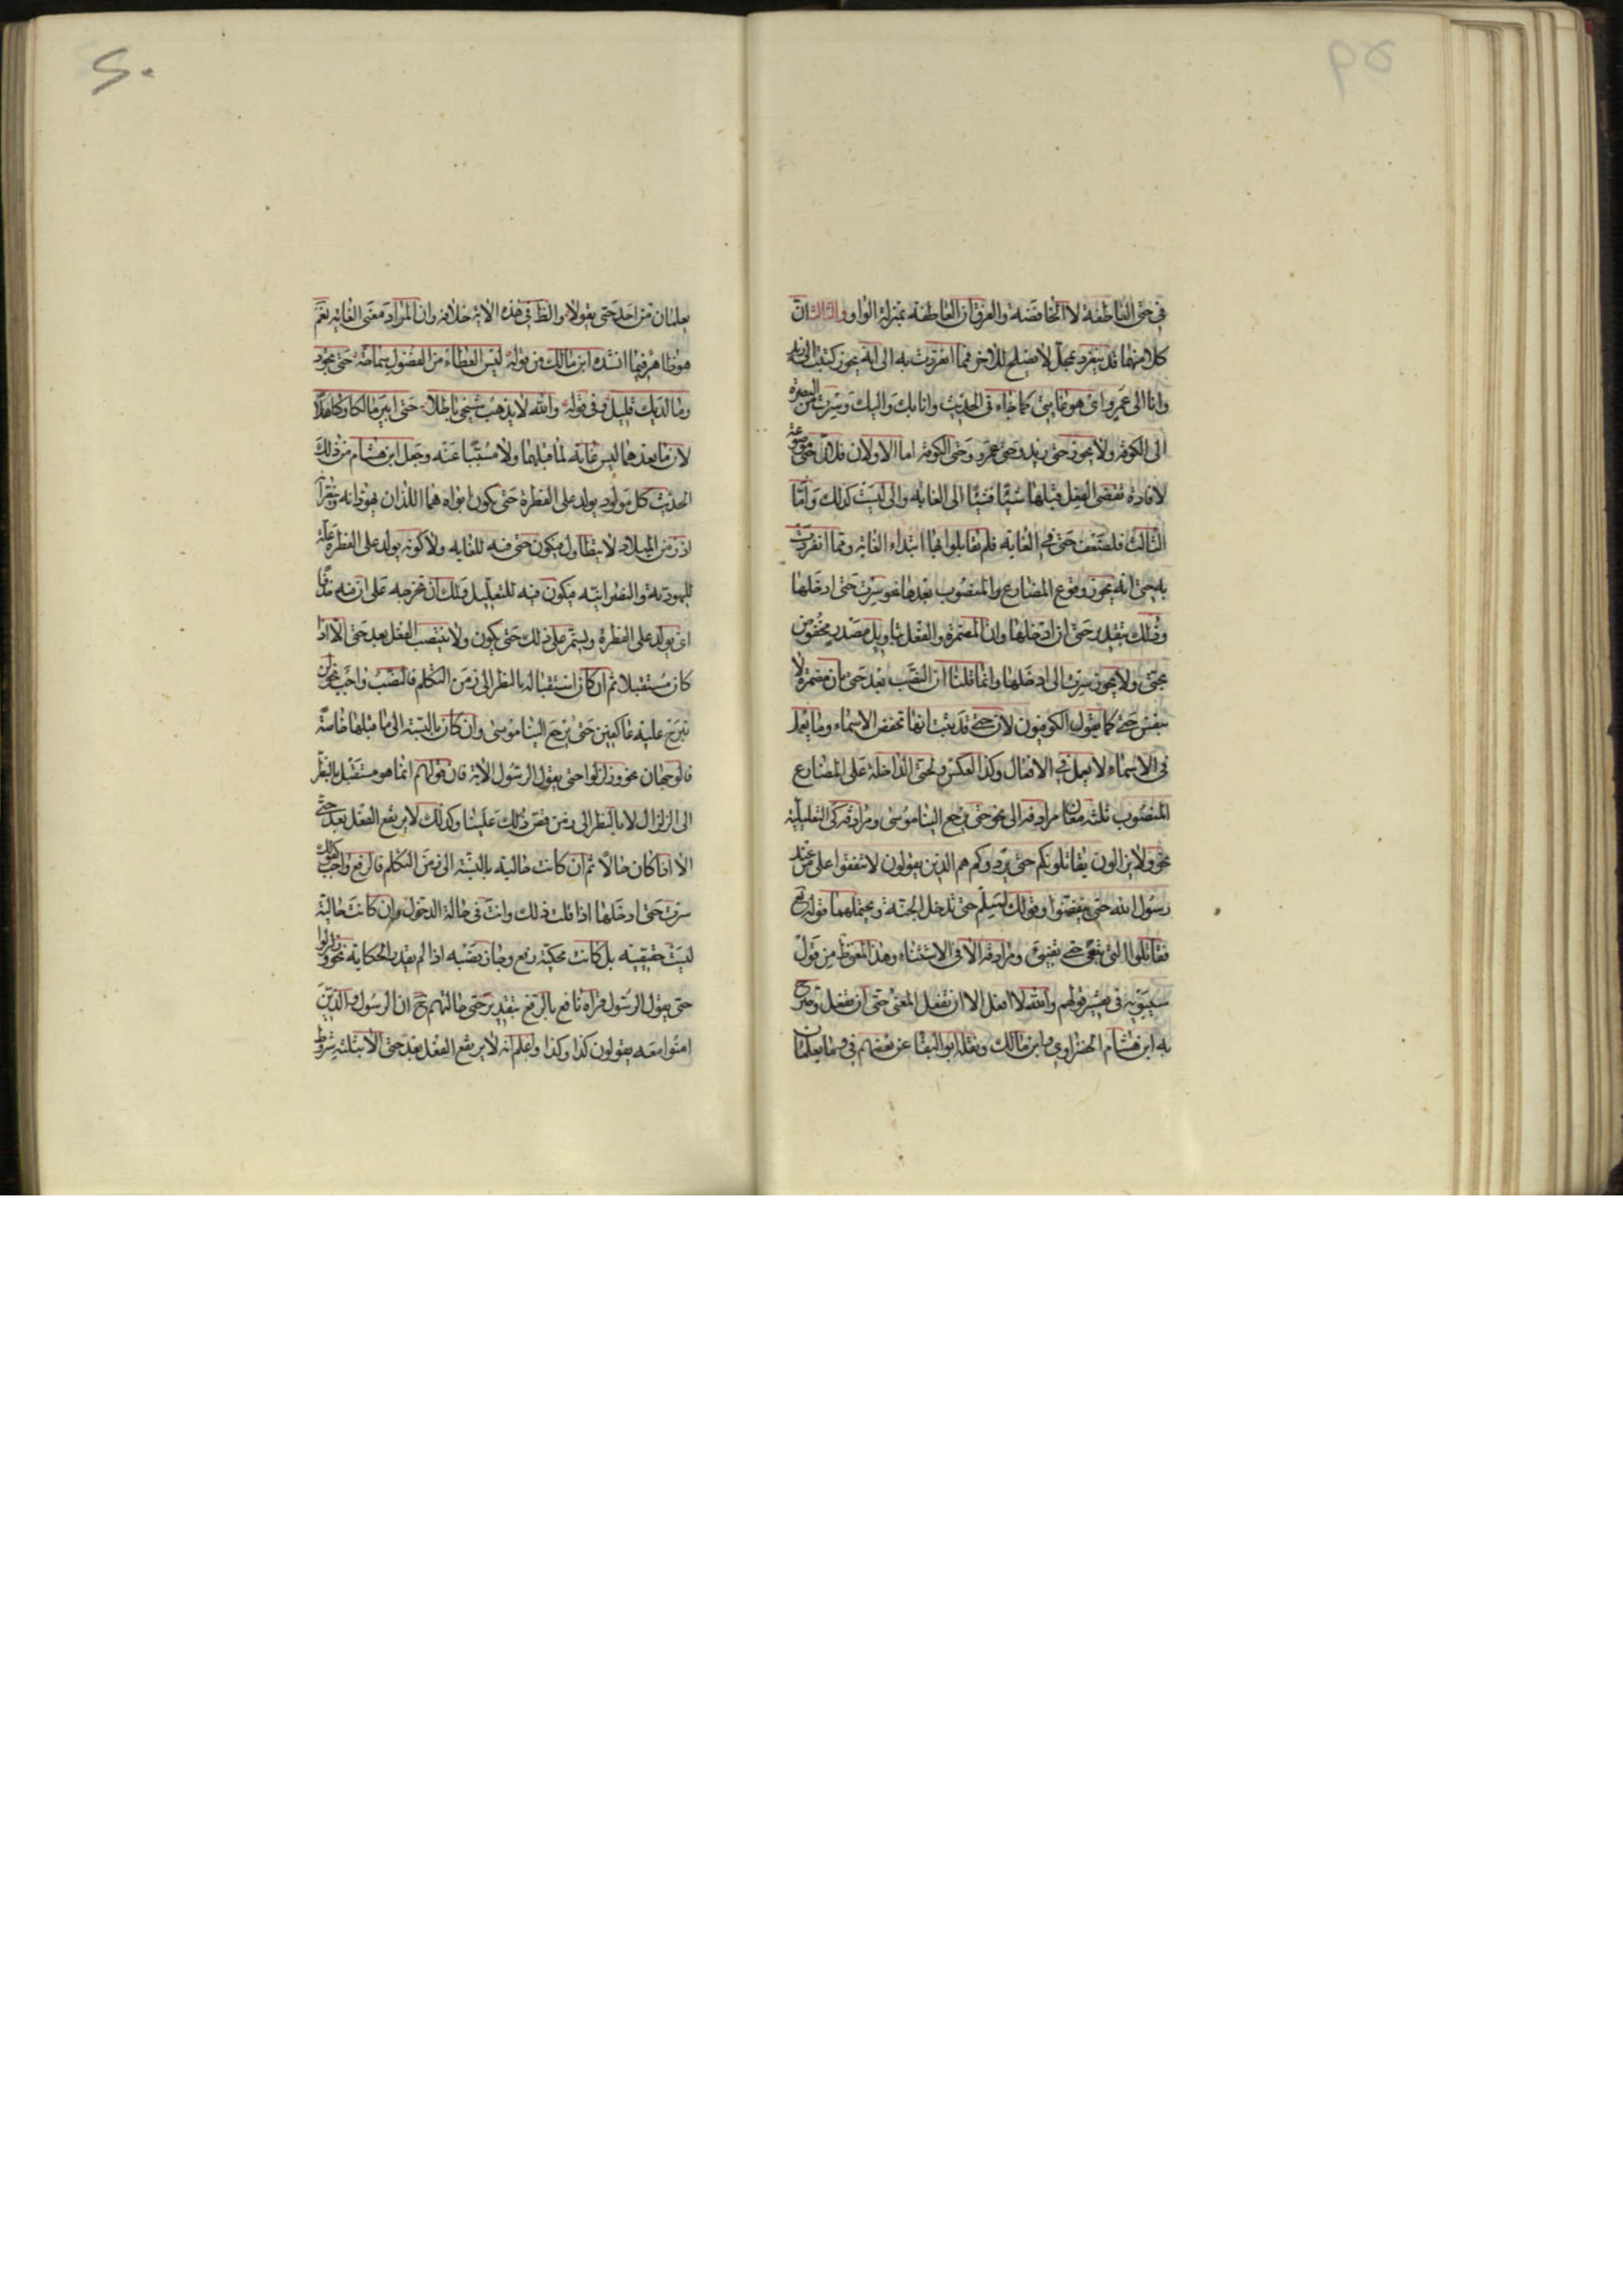 في حتى العاطفة لا الخافضة والفرق ان العاطفة بمنزلة الواو والثالث ان
كلا منهما قد ينفرد بمحل لا يصلح للاخر فمما انفردت به الى انه يجوز كتبت الى زيد
وانا الى عمرو اى هو غايتى كما جاء في الحديث وانا بك واليك وسرت من البصرة
الى الكوفة ولا يجوز حتى زيد وحتى عمرو وحتى الكوفة اما الاولان فلان حتى موضوعة
لافادة تقضى الفعل قبلها شيئا فشيئا الى الغاية والى ليست كذلك واما
الثالث فلضعف حتى في الغاية فلم يقابلوا بها ابتداء الغاية ومما انفردت
به حتى انه يجوز وقوع المضارع المنصوب بعدها نحو سرت حتى ادخلها
وذلك بتقدير حتى ان ادخلها وان المضمرة والفعل بتاويل مصدر مخفوض
بحتى ولا يجوز سرت الى ادخلها وانما قلنا ان النصب بعد حتى بان مضمرة لا
بنفس حتى كما يقول الكوفيون لان حتى قد ثبت انها تخفض الاسماء وما يعمل
في الاسماء لا يعمل في الافعال وكذا العكس ولحتى الداخلة على المضارع
المنصوب ثلثة معان مرادفة الى نحو حتى يرجع الينا موسى ومرادفة كى التعليلية
نحو ولا يزالون يقاتلونكم حتى يردوكم هم الذين يقولون لا تنفقوا على من عند
رسول الله حتى ينفضوا وقولك اسلم حتى تدخل الجنة ويحتملهما قوله تع
فقاتلوا التى تبغى حتى تفيئ ومرادفة الا في الاستثناء وهذا المعنى ظ من قول
سيبويه في تفسير قولهم والله لا افعل الا ان تفعل المعنى حتى ان تفعل وصرح
به ابن هشام الخضراوي وابن مالك ونقله ابو البقا عن بعضهم في وما يعلمان
50
يعلمان من احد حتى يقولا والظ في هذه الاية خلافه وان المراد معنى الغاية نعم
هو ظاهر فيما انشده ابن مالك من قوله ليس العطاء من الفضول سماحة حتى تجود
وما لديك قليل وفي قوله والله لا يذهب شيخي باطلا حتى ابير مالكا وكاهلا
لان ما بعدهما ليس غاية لما قبلهما ولا مسببا عنه وجعل ابن هشام من ذلك
الحديث كل مولود يولد على الفطرة حتى يكون ابواه هما اللذان يهودانه وينصرانه
اذ زمن الميلاد لا يتطاول فيكون حتى فيه للغاية ولا كونه يولد على الفطرة علة
لليهودية والنصرانية فيكون فيه للتعليل ولك ان تخرجه على ان فيه حذفا
اى يولد على الفطرة ويستمر على ذلك حتى يكون ولا ينتصب الفعل بعد حتى الا اذا
كان مستقبلا ثم ان كان استقباله بالنظر الى زمن التكلم فالنصب واجب نحو لن
نبرح عليه عاكفين حتى يرجع الينا موسى وان كان بالنسبة الى ما قبلها خاصة
فالوجهان نحو وزلزلوا حتى يقول الرسول الاية فان قولهم انما هو مستقبل بالنظر
الى الزلزال لا بالنظر الى زمن قص ذلك علينا وكذلك لا يرتفع الفعل بعد حتى
الا اذا كان حالا ثم ان كانت حاليته بالنسبة الى زمن التكلم فالرفع واجب كقولك
سرت حتى ادخلها اذا قلت ذلك وانت في حالة الدخول وان كانت حاليته
ليست حقيقية بل كانت محكية رفع وجاز نصبه اذا لم يقدر الحكاية نحو وزلزلوا
حتى يقول الرسول قراه نافع بالرفع بتقدير حتى حالتهم ح ان الرسول والذين
امنوا معه يقولون كذا وكذا واعلم انه لا يرتفع الفعل بعد حتى الا بثلثة شروط